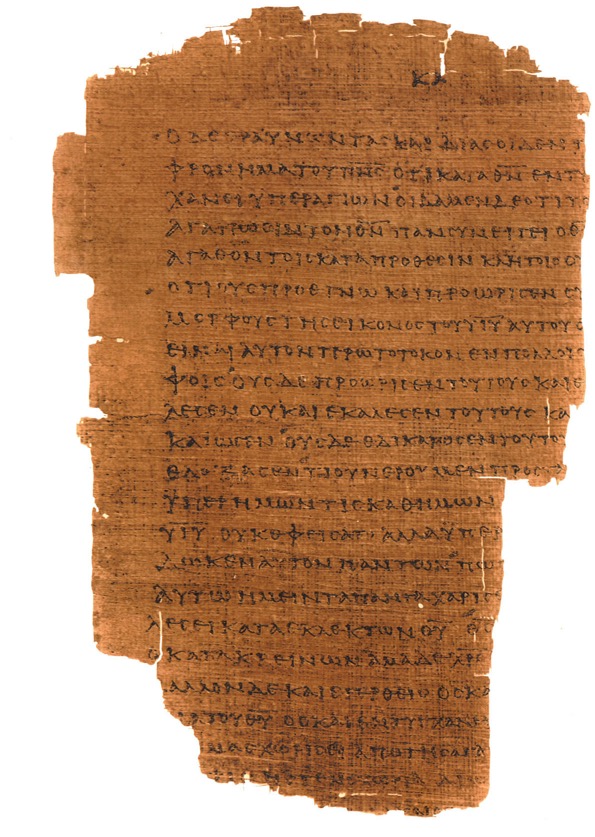 ΚΑ
Ο ΔΕ ΕΡΑΥΝΩΝ ΤΑϹ ΚΑΡΔΙΑϹ ΟΙΔΕΝ Τ
ΦΡΟΝΗΜΑ ΤΟΥ Π̅Ν̅Ϲ̅ ΟΤΙ ΚΑΤΑ Θ̅Ν̅ ΕΝΤΥ
ΧΑΝΕΙ ΥΠΕΡ ΑΓΙΩΝ ΟΙΔΑΜΕΝ ΔΕ ΟΤΙ ΤΟΙϹ
ΑΓΑΠΩϹΙΝ ΤΟΝ Θ̅Ν̅ ΠΑΝ ϹΥΝΕΡΓΕΙ Ο Θ
ΑΓΑΘΟΝ ΤΟΙϹ ΚΑΤΑ ΠΡΟΘΕϹΙΝ ΚΛΗΤΟΙϹ Ο
ΟΤΙ ΟΥϹ ΠΡΟΕΓΝΩ ΚΑΙ ΠΡΟΩΡΙϹΕΝ ϹΥ
ΜΟΡΦΟΥϹ ΤΗϹ ΕΙΚΟΝΟϹ ΤΟΥ Υ̅Ι̅Υ̅ ΑΥΤΟΥ
ΕΙΝΑΙ ΑΥΤΟΝ ΠΡΩΤΟΤΟΚΟΝ ΕΝ ΠΟΛΛΟΙϹ
ΦΟΙϹ ΟΥϹ ΔΕ ΠΡΟΩΡΙϹΕΝ ΤΟΥΤΟΥϹ ΚΑΙ Ε
ΛΕϹΕΝ ΟΥϹ ΚΑΙ ΕΚΑΛΕϹΕΝ ΤΟΥΤΟΥϹ ΚΑ
ΚΑΙΩϹΕΝ ΟΥϹ ΔΕ ΕΔΙΚΑΙΩϹΕΝ ΤΟΥΤΟ
ΕΔΟΞΑϹΕΝ ΤΙ ΟΥΝ ΕΡΟΥΜΕΝ ΠΡΟϹ ΤΑ
ΥΠΕΡ ΗΜΩΝ ΤΙϹ ΚΑΘ ΗΜΩΝ
Υ̅Ι̅Υ̅ ΟΥΚ ΕΦΕΙϹΑΤΟ ΑΛΛΑ ΥΠΕΡ
ΔΩΚΕΝ ΑΥΤΟΝ ΠΑΝΤΩΝ ΠΩ
ΑΥΤΩ ΗΜΕΙΝ ΤΑ ΠΑΝΤΑ ΧΑΡΙϹ
ΛΕϹΕΙ ΚΑΤΑ ΕΚΛΕΚΤΩΝ Θ̅Υ̅ Θ̅Ϲ̅
Ο ΚΑΤΑΚΡΕΙΝΩΝ ΑΜΑ ΔΕ ΧΡ
ΜΑΛΛΟΝ ΔΕ ΚΑΙ ΕΓΕΡΘΕΙϹ ΟϹ Κ
ΤΟΥ Θ̅Υ̅ ΟϹ ΚΑΙ ΕΝΤΥΓΧΑΝ
ΗΜΑϹ ΧΩΡΙϹΕΙ ΑΠΟ ΤΗϹ ΑΓΑ